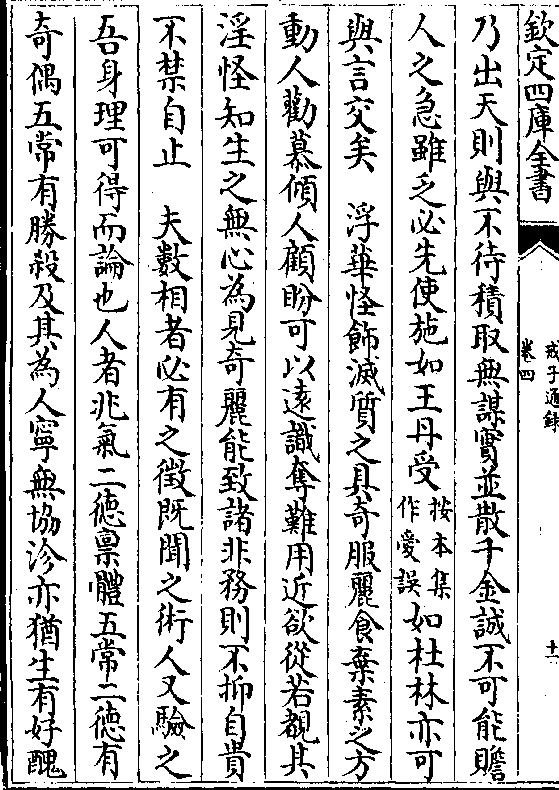 欽定四庫全書
戒子通錄
卷四
十一
乃出天則與不待積取無謀實並散千金誠不可能贍
人之急雖乏必先使施如王丹受按本集作愛誤如杜林亦可
與言交矣　浮華怪飾滅質之具奇服麗食棄素之方
動人勸慕傾人顧盼可以遠識奪難用近欲從若覩其
淫怪知生之無心為見奇麗能致諸非務則不抑自貴
不禁自止　夫數相者必有之徵既聞之術人又驗之
吾身理可得而論也人者兆氣二徳稟體五常二徳有
奇偶五常有勝殺及其為人寧無協沴亦猶生有好醜